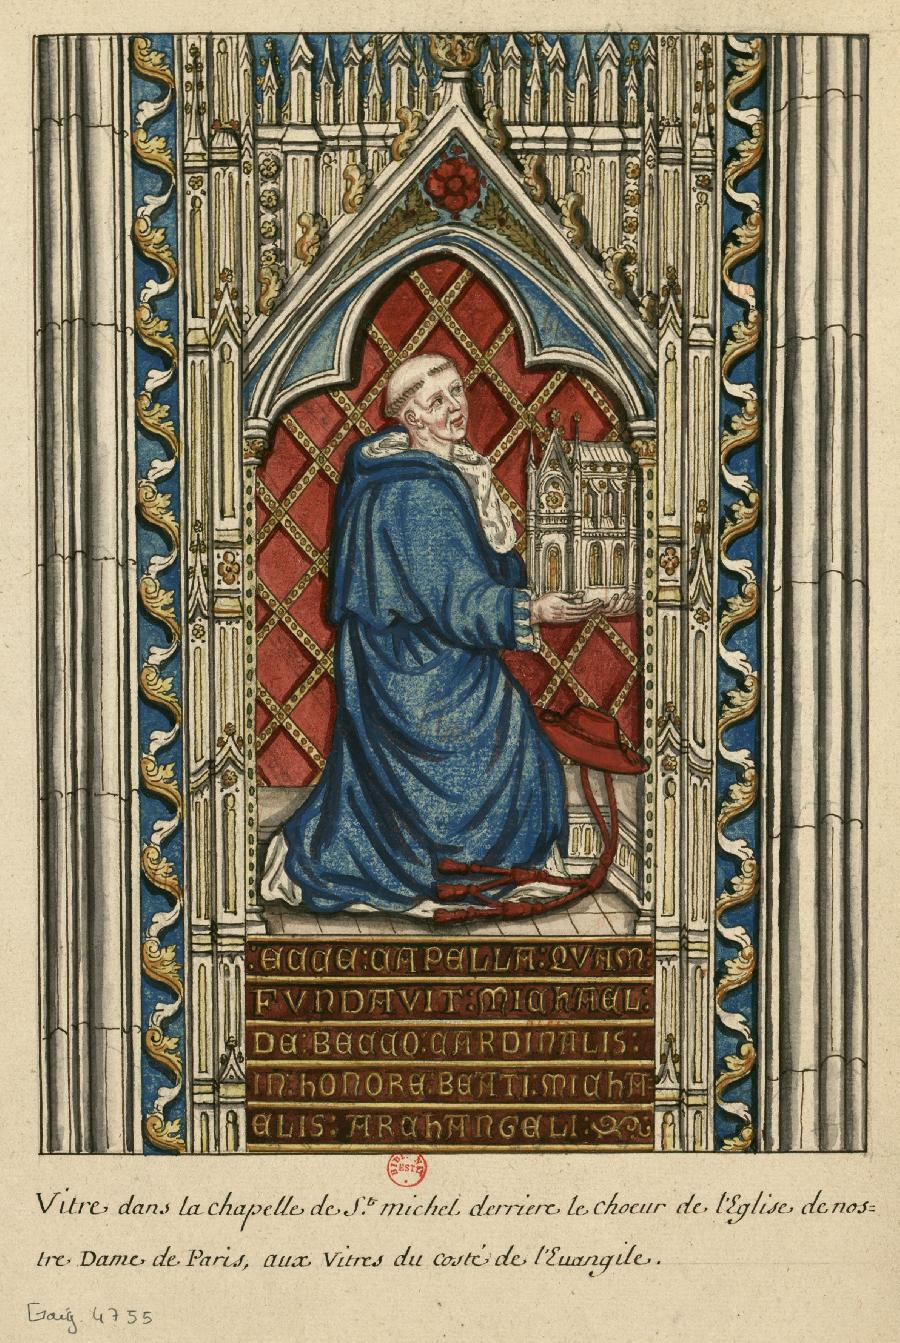 :ECCE:CAPELLA:QVAM:
FVNDAVIT:MICHAEL:
DE:BECCO:CARDINALIS:
IN:hONORE:BEATI:MICHA
ELIS:ARCHANGELI:
BIBL
EST
Vitre dans la chapelle de S.te michel derriere le choeur de l'Eglise de nos=
tre Dame de Paris, aux Vitres du costé de l'Euangile.
Gaig. 4755